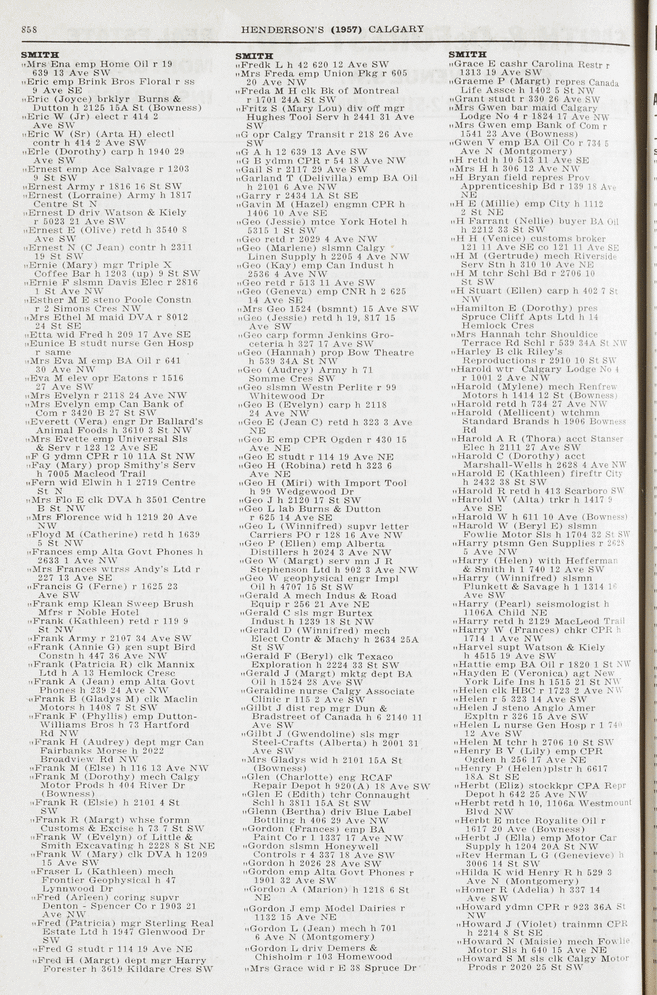 858
HENDERSON'S (1957) CALGARY
SMITH
„Mrs Ena emp Home Oil r 19
639 13 Ave SW
„Eric emp Brink Bros Floral r ss
9 Ave SE
„Eric (Joyce) brklyr Burns &
Dutton h 2125 15A St (Bowness)
„Eric W (Jr) elect r 414 2
Ave SW
„Eric W (Sr) (Arta H) electl
contr h 414 2 Ave SW
„Erle (Dorothy) carp h 1940 29
Ave SW
„Ernest emp Ace Salvage r 1203
9 St SW
„Ernest Army r 1816 16 St SW
„Ernest (Lorraine) Army h 1817
Centre St N
„Ernest D driv Watson & Kiely
r 5023 21 Ave SW
„Ernest E (Olive) retd h 3540 8
Ave SW
„Ernest N (C Jean) contr h 2311
19 St SW
„Ernie (Mary) mgr Triple X
Coffee Bar h 1203 (up) 9 St SW
„Ernie F slsmn Davis Elec r 2816
1 St Ave NW
„Esther M E steno Poole Constn
r 2 Simons Cres NW
„Mrs Ethel M maid DVA r 8012
24 St SE
„Etta wid Fred h 209 17 Ave SE
„Eunice B studt nurse Gen Hosp
r same
„Mrs Eva M emp BA Oil r 641
30 Ave NW
„Eva M elev opr Eatons r 1516
27 Ave SW
„Mrs Evelyn r 2118 24 Ave NW
„Mrs Evelyn emp Can Bank of
Com r 3420 B 27 St SW
„Everett (Vera) engr Dr Ballard's
Animal Foods h 3610 3 St NW
„Mrs Evette emp Universal Sls
& Serv r 123 12 Ave SE
„F G ydmn CPR r 10 11A St NW
„Fay (Mary) prop Smithy's Serv
h 7005 Macleod Trail
„Fern wid Elwin h 1 2719 Centre
St N
„Mrs Flo E clk DVA h 3501 Centre
B St NW
„Mrs Florence wid h 1219 20 Ave
NW
„Floyd M (Catherine) retd h 1639
5 St NW
„Frances emp Alta Govt Phones h
2633 1 Ave NW
„Mrs Frances wtrss Andy's Ltd r
227 13 Ave SE
„Francis G (Ferne) r 1625 23
Ave SW
„Frank emp Klean Sweep Brush
Mfrs r Noble Hotel
„Frank (Kathleen) retd r 119 9
St NW
„Frank Army r 2107 34 Ave SW
„Frank (Annie G) gen supt Bird
Constn h 447 36 Ave NW
„Frank (Patricia R) clk Mannix
Ltd h A 13 Hemlock Cresc
„Frank A (Jean) emp Alta Govt
Phones h 239 24 Ave NW
„Frank B (Gladys M) clk Maclin
Motors h 1408 7 St SW
„Frank F (Phyllis) emp Dutton-
Williams Bros h 73 Hartford
Rd NW
„Frank H (Audrey) dept mgr Can
Fairbanks Morse h 2022
Broadview Rd NW
„Frank M (Else) h 116 13 Ave NW
„Frank M (Dorothy) mech Calgy
Motor Prods h 404 River Dr
(Bowness)
„Frank R (Elsie) h 2101 4 St
SW
„Frank R (Margt) whse formn
Customs & Excise h 73 7 St SW
„Frank W (Evelyn) of Little &
Smith Excavating h 2228 8 St NE
„Frank W (Mary) clk DVA h 1209
15 Ave SW
„Fraser L (Kathleen) mech
Frontier Geophysical h 47
Lynnwood Dr
„Fred (Arleen) coring supvr
Denton - Spencer Co r 1903 21
Ave NW
„Fred (Patricia) mgr Sterling Real
Estate Ltd h 1947 Glenwood Dr
SW
„Fred G studt r 114 19 Ave NE
„Fred H (Margt) dept mgr Harry
Forester h 3619 Kildare Cres SW
SMITH
„Fredk L h 42 620 12 Ave SW
„Mrs Freda emp Union Pkg r 605
20 Ave NW
„Freda M H clk Bk of Montreal
r 1701 24A St SW
„Fritz S (Mary Lou) div off mgr
Hughes Tool Serv h 2441 31 Ave
SW
„G opr Calgy Transit r 218 26 Ave
SW
„G A h 12 639 13 Ave SW
„G B ydmn CPR r 54 18 Ave NW
„Gail S r 2117 29 Ave SW
„Garland T (Delivilla) emp BA Oil
h 2101 6 Ave NW
„Garry r 2434 1A St SE
„Gavin M (Hazel) engmn CPR h
1406 10 Ave SE
„Geo (Jessie) mtce York Hotel h
5315 1 St SW
„Geo retd r 2029 4 Ave NW
„Geo (Marlene) slsmn Calgy
Linen Supply h 2205 4 Ave NW
„Geo (Kay) emp Can Indust h
2536 4 Ave NW
„Geo retd r 513 11 Ave SW
„Geo (Geneva) emp CNR h 2 625
14 Ave SE
„Mrs Geo 1524 (bsmnt) 15 Ave SW
„Geo (Jessie) retd h 19, 817 15
Ave SW
„Geo carp formn Jenkins Gro-
ceteria h 327 17 Ave SW
„Geo (Hannah) prop Bow Theatre
h 539 34A St NW
„Geo (Audrey) Army h 71
Somme Cres SW
„Geo slsmn Westn Perlite r 99
Whitewood Dr
„Geo B (Evelyn) carp h 2118
24 Ave NW
„Geo E (Jean C) retd h 323 3 Ave
NE
„Geo E emp CPR Ogden r 430 15
Ave NE
„Geo E studt r 114 19 Ave NE
„Geo H (Robina) retd h 323 6
Ave NE
„Geo H (Miri) with Import Tool
h 99 Wedgewood Dr
„Geo J h 2120 17 St SW
„Geo L lab Burns & Dutton
r 625 14 Ave SE
„Geo L (Winnifred) supvr letter
Carriers PO r 128 16 Ave NW
„Geo P (Ellen) emp Alberta
Distillers h 2024 3 Ave NW
„Geo W (Margt) serv mn J R
Stephenson Ltd h 902 3 Ave NW
„Geo W geophysical engr Impl
Oil h 4707 15 St SW
„Gerald A mech Indus & Road
Equip r 256 21 Ave NE
„Gerald C sls mgr Burtex
Indust h 1239 18 St NW
„Gerald D (Winnifred) mech
Elect Contr & Machy h 2634 25A
St SW
„Gerald F (Beryl) clk Texaco
Exploration h 2224 33 St SW
„Gerald J (Margt) mktg dept BA
Oil h 1524 28 Ave SW
„Geraldine nurse Calgy Associate
Clinic r 115 2 Ave SW
„Gilbt J dist rep mgr Dun &
Bradstreet of Canada h 6 2140 11
Ave SW
„Gilbt J (Gwendoline) sls mgr
Steel-Crafts (Alberta) h 2001 31
Ave SW
„Mrs Gladys wid h 2101 15A St
(Bowness)
„Glen (Charlotte) eng RCAF
Repair Depot h 920(A) 18 Ave SW
„Glen E (Edith) tchr Connaught
Schl h 3811 15A St SW
„Glenn (Bertha) driv Blue Label
Bottling h 406 29 Ave NW
„Gordon (Frances) emp BA
Paint Co r 1 1337 17 Ave NW
„Gordon slsmn Honeywell
Controls r 4 337 18 Ave SW
„Gordon h 2026 28 Ave SW
„Gordon emp Alta Govt Phones r
1901 32 Ave SW
„Gordon A (Marion) h 1218 6 St
NE
„Gordon J emp Model Dairies r
1132 15 Ave NE
„Gordon L (Jean) mech h 701
6 Ave N (Montgomery)
„Gordon L driv Demers &
Chisholm r 103 Homewood
„Mrs Grace wid r E 38 Spruce Dr
SMITH
„Grace E cashr Carolina Restr r
1313 19 Ave SW
„Graeme P (Margt) repres Canada
Life Assce h 1402 5 St NW
„Grant studt r 330 26 Ave SW
„Mrs Gwen bar maid Calgary
Lodge No 4 r 1824 17 Ave NW
„Mrs Gwen emp Bank of Com r
1541 23 Ave (Bowness)
„Gwen V emp BA Oil Co r 734 5
Ave N (Montgomery)
„H retd h 10 513 11 Ave SE
„Mrs H h 306 12 Ave NW
„H Bryan field repres Prov
Apprenticeship Bd r 139 18 Ave
NE
„H E (Millie) emp City h 1112
2 St NE
„H Farrant (Nellie) buyer BA Oil
h 2212 33 St SW
„H H (Venice) customs broker
121 11 Ave SE co 121 11 Ave SE
„H M (Gertrude) mech Riverside
Serv Stn h 310 10 Ave NE
„H M tchr Schl Bd r 2706 10
St SW
„H Stuart (Ellen) carp h 402 7 St
NW
„Hamilton E (Dorothy) pres
Spruce Cliff Apts Ltd h 14
Hemlock Cres
„Mrs Hannah tchr Shouldice
Terrace Rd Schl r 539 34A St NW
„Harley B clk Riley's
Reproductions r 2910 10 St SW
„Harold wtr Calgary Lodge No 4
r 1001 2 Ave NW
„Harold (Mylene) mech Renfrew
Motors h 1414 12 St (Bowness)
„Harold retd h 734 27 Ave NW
„Harold (Mellicent) wtchmn
Standard Brands h 1906 Bowness
Rd
„Harold A R (Thora) acct Stanser
Elec h 2111 27 Ave SW
„Harold C (Dorothy) acct
Marshall-Wells h 2628 4 Ave NW
„Harold E (Kathleen) fireftr City
h 2432 38 St SW
„Harold R retd h 413 Scarboro SW
„Harold W (Alta) trkr h 1417 9
Ave SE
„Harold W h 611 10 Ave (Bowness)
„Harold W (Beryl E) slsmn
Fowlie Motor Sls h 1704 32 St SW
„Harry ptsmn Gen Supplies r 2628
5 Ave NW
„Harry (Helen) with Hefferman
& Smith h 1 740 12 Ave SW
„Harry (Winnifred) slsmn
Plunkett & Savage h 1 1314 16
Ave SW
„Harry (Pearl) seismologist h
1106A Child NE
„Harry retd h 2129 MacLeod Trail
„Harry W (Frances) chkr CPR h
1714 1 Ave NW
„Harvel supt Watson & Kiely
h 4515 19 Ave SW
„Hattie emp BA Oil r 1820 1 St NW
„Hayden E (Veronica) agt New
York Life Ins h 1515 21 St NW
„Helen clk HBC r 1723 2 Ave NW
„Helen r 5 323 14 Ave SW
„Helen J steno Anglo Amer
Expltn r 326 15 Ave SW
„Helen L nurse Gen Hosp r 1 740
12 Ave SW
„Helen M tchr h 2706 10 St SW
„Henry B V (Lily) emp CPR
Ogden h 256 17 Ave NE
„Henry P (Helen)plstr h 6617
18A St SE
„Herbt (Eliz) stockkpr CPA Repr
Depot h 642 25 Ave NW
„Herbt retd h 10, 1106a Westmount
Blvd NW
„Herbt E mtce Royalite Oil r
1617 20 Ave (Bowness)
„Herbt J (Ella) emp Motor Car
Supply h 1204 20A St NW
„Rev Herman L G (Genevieve) h
3006 14 St SW
„Hilda K wid Henry R h 529 3
Ave N (Montgomery)
„Homer R (Adelia) h 337 14
Ave SW
„Howard ydmn CPR r 923 36A St
NW
„Howard J (Violet) trainmn CPR
h 2214 8 St SE
„Howard N (Maisie) mech Fowlie
Motor Sls h 640 15 Ave NE
„Howard S M sls clk Calgy Motor
Prods r 2020 25 St SW